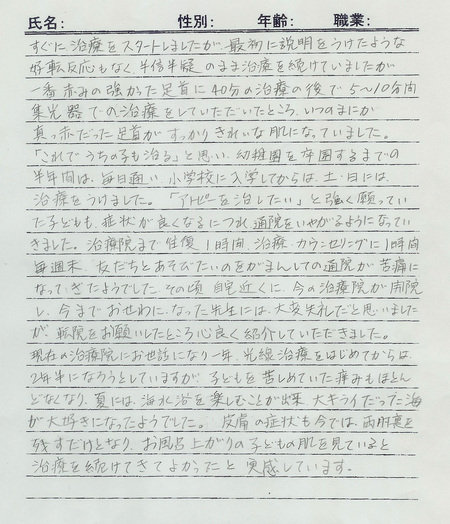 氏名: 性別: 年齢: 職業:
すぐに治療をスタートしましたが、最初に説明をうけたような
好転反応もなく、半信半疑のまま治療を続けていましたが
一番赤みの強かった足首に40分の治療の後で5〜10分間
集光器での治療をしていただいたところ、いつのまにか
真っ赤だった足首がすっかりきれいな肌になっていました。
「これでうちの子も治る」と思い、幼稚園を卒園するまでの
半年間は、毎日通い、小学校に入学してからは、土・日には、
治療をうけました。「アトピーを治したい」と強く願ってい
た子どもも、症状が良くなるにつれ通院をいやがるようになってい
きました。治療院まで往復1時間、治療・カウンセリングに1時間
毎週末、友だちとあそびたいのをがまんしての通院が苦痛に
なっていきたようでした。その頃自宅近くに、今の治療院が開院
し、今までおせわになった先生には、大変失礼だと思いました
が、転院をお願いしたところ心良く紹介していただきました。
現在の治療院にお世話になり一年、光線治療をはじめてからは、
2年半になろうとしていますが、子どもを苦しめていた痒みもほとん
どなくなり、夏には、海水浴を楽しむことが出来、大キライだった海
が大好きになったようでした。皮膚の症状も今では、両肘裏を
残すだけとなり、お風呂上がりの子どもの肌を見ていると
治療を続けてきてよかったと実感しています。